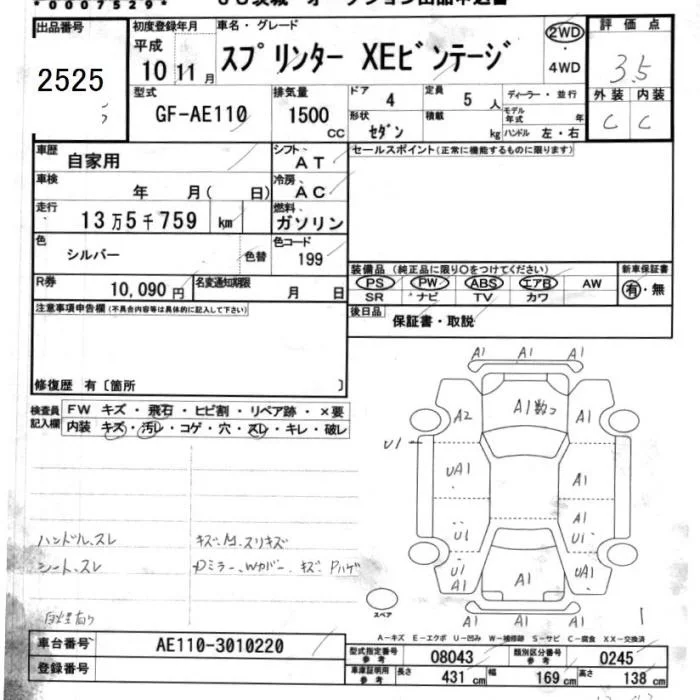 *0007529*
出品番号 初度登録年月 車名・グレード 2WD ・ 4WD 評価点
2525 平成 10 11月 スプリンター XEビンテージ 3.5
型式 排気量 ドア 定員 ディーラー・並行 外装 内装
GF-AE110 1500 CC 4 5 人 モデル年式 年 C C
形状 セダン 積載 kg ハンドル 左・右
車歴 自家用 シフト AT セールスポイント(正常に機能するものに限ります)
車検 年 月( 日) 冷房 AC
走行 13万5千759 km 燃料 ガソリン
色 シルバー 色替 色コード 199
装備品 (純正品に限り○をつけてください) 新車保証書
PS PW ABS エアB AW 有・無
SR ナビ TV カワ
R券 10,090円 名変通知期限 月 日
後日品 保証書・取説
注意事項申告欄(不具合内容等は具体的に記入して下さい)
修復歴 有〔箇所 〕
検査員記入欄 FW キズ・飛石・ヒビ割・リペア跡・×要
内装 キズ・汚レ・コゲ・穴・スレ・キレ・破レ
A1 A1 A1
A2 A1 A1
U1 UA1 A1
A1
U1 U1
U1 A1 A1 UA1
A1 A1 A1
ハンドル、スレ
シート、スレ
スペア
A-キズ E-エクボ U-凹み W-補修跡 S-サビ C-腐食 XX-交換済
車台番号 AE110-3010220
型式指定番号 参考 08043 類別区分番号 参考 0245
登録番号
車庫証明用 参考 長さ 431 cm 幅 169 cm 高さ 138 cm